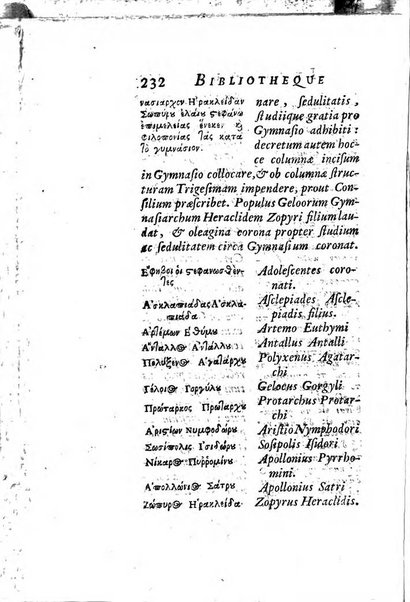 232 BIBLIOTHEQUE
νασιαρχον Ηρακλείδαν
Σωπύρυ ἐλαίυ ϛεφάνω
ἐπιμελείας ἕνεκεν κὶ
φιλοπονίας τᾶς κατα
το γυμνάσιον.
nare, sedulitatis,
studiique gratia pro
Gymnasio adhibiti:
decretum autem hoc-
ce columnæ incisum
in Gymnasio collocare, & ob columnæ struc-
turam Trigesimam impendere, prout Con-
silium præscribet. Populus Geloorum Gym-
nasiarchum Heraclidem Zopyri filium lau-
dat, & oleagina corona propter studium
ac sedulitatem circa Gymnasium coronat.
Εφηβοι οἱ ϛεφανωσθέν-
τες
Adolescentes coro-
nati.
Ἀσκλαπιάδας Ἀσκλα-
πιάδα
Asclepiades Ascle-
piadis filius.
Ἀρτέμων Εὐθύμυ
Artemo Euthymi
Ἀνταλλος Ἀνταλλυ
Antallus Antalli
Πολύξενος Ἀγατάρχυ
Polyxenus Agatar-
chi
Γέλοις Γοργύλυ
Gelocus Gorgyli
Πρώταρκος Πρωτάρχυ
Protarchus Protar-
chi
Ἀριστίων Νυμφοδώρυ
Aristio Nymphodori
Σωσίπολις Ισιδώρυ
Sosipolis Isidori
Νίκαρος Πυῤῥομένυ
Apollonius Pyrrho-
mini.
Ἀπολλώνιος Σάτρυ
Apollonius Satri
Ζώπυρος Ηρακλείδα.
Zopyrus Heraclidis.